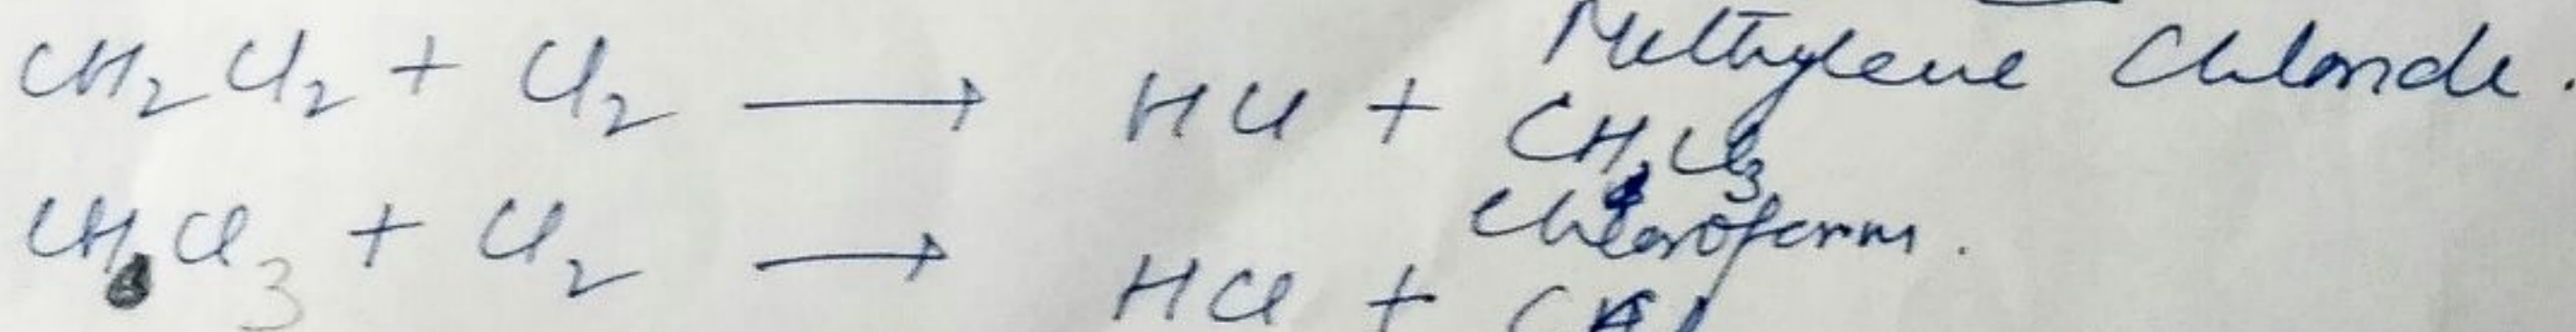 Methylene Chloride.
CH₂Cl₂ + Cl₂ ⟶ HCl + CHCl₃
Chloroform.
CHCl₃ + Cl₂ ⟶ HCl +